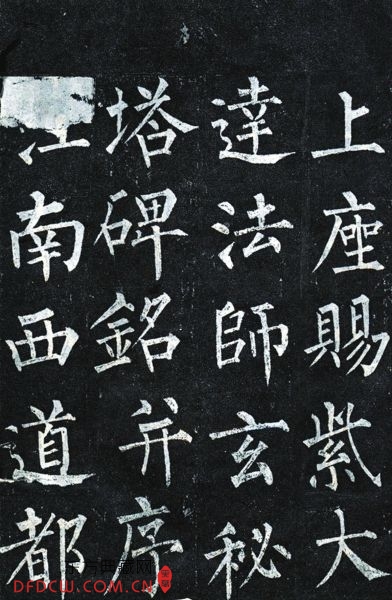 上座賜紫大
達法師玄秘
塔碑銘并序
江南西道都
DFDCW.COM.CN